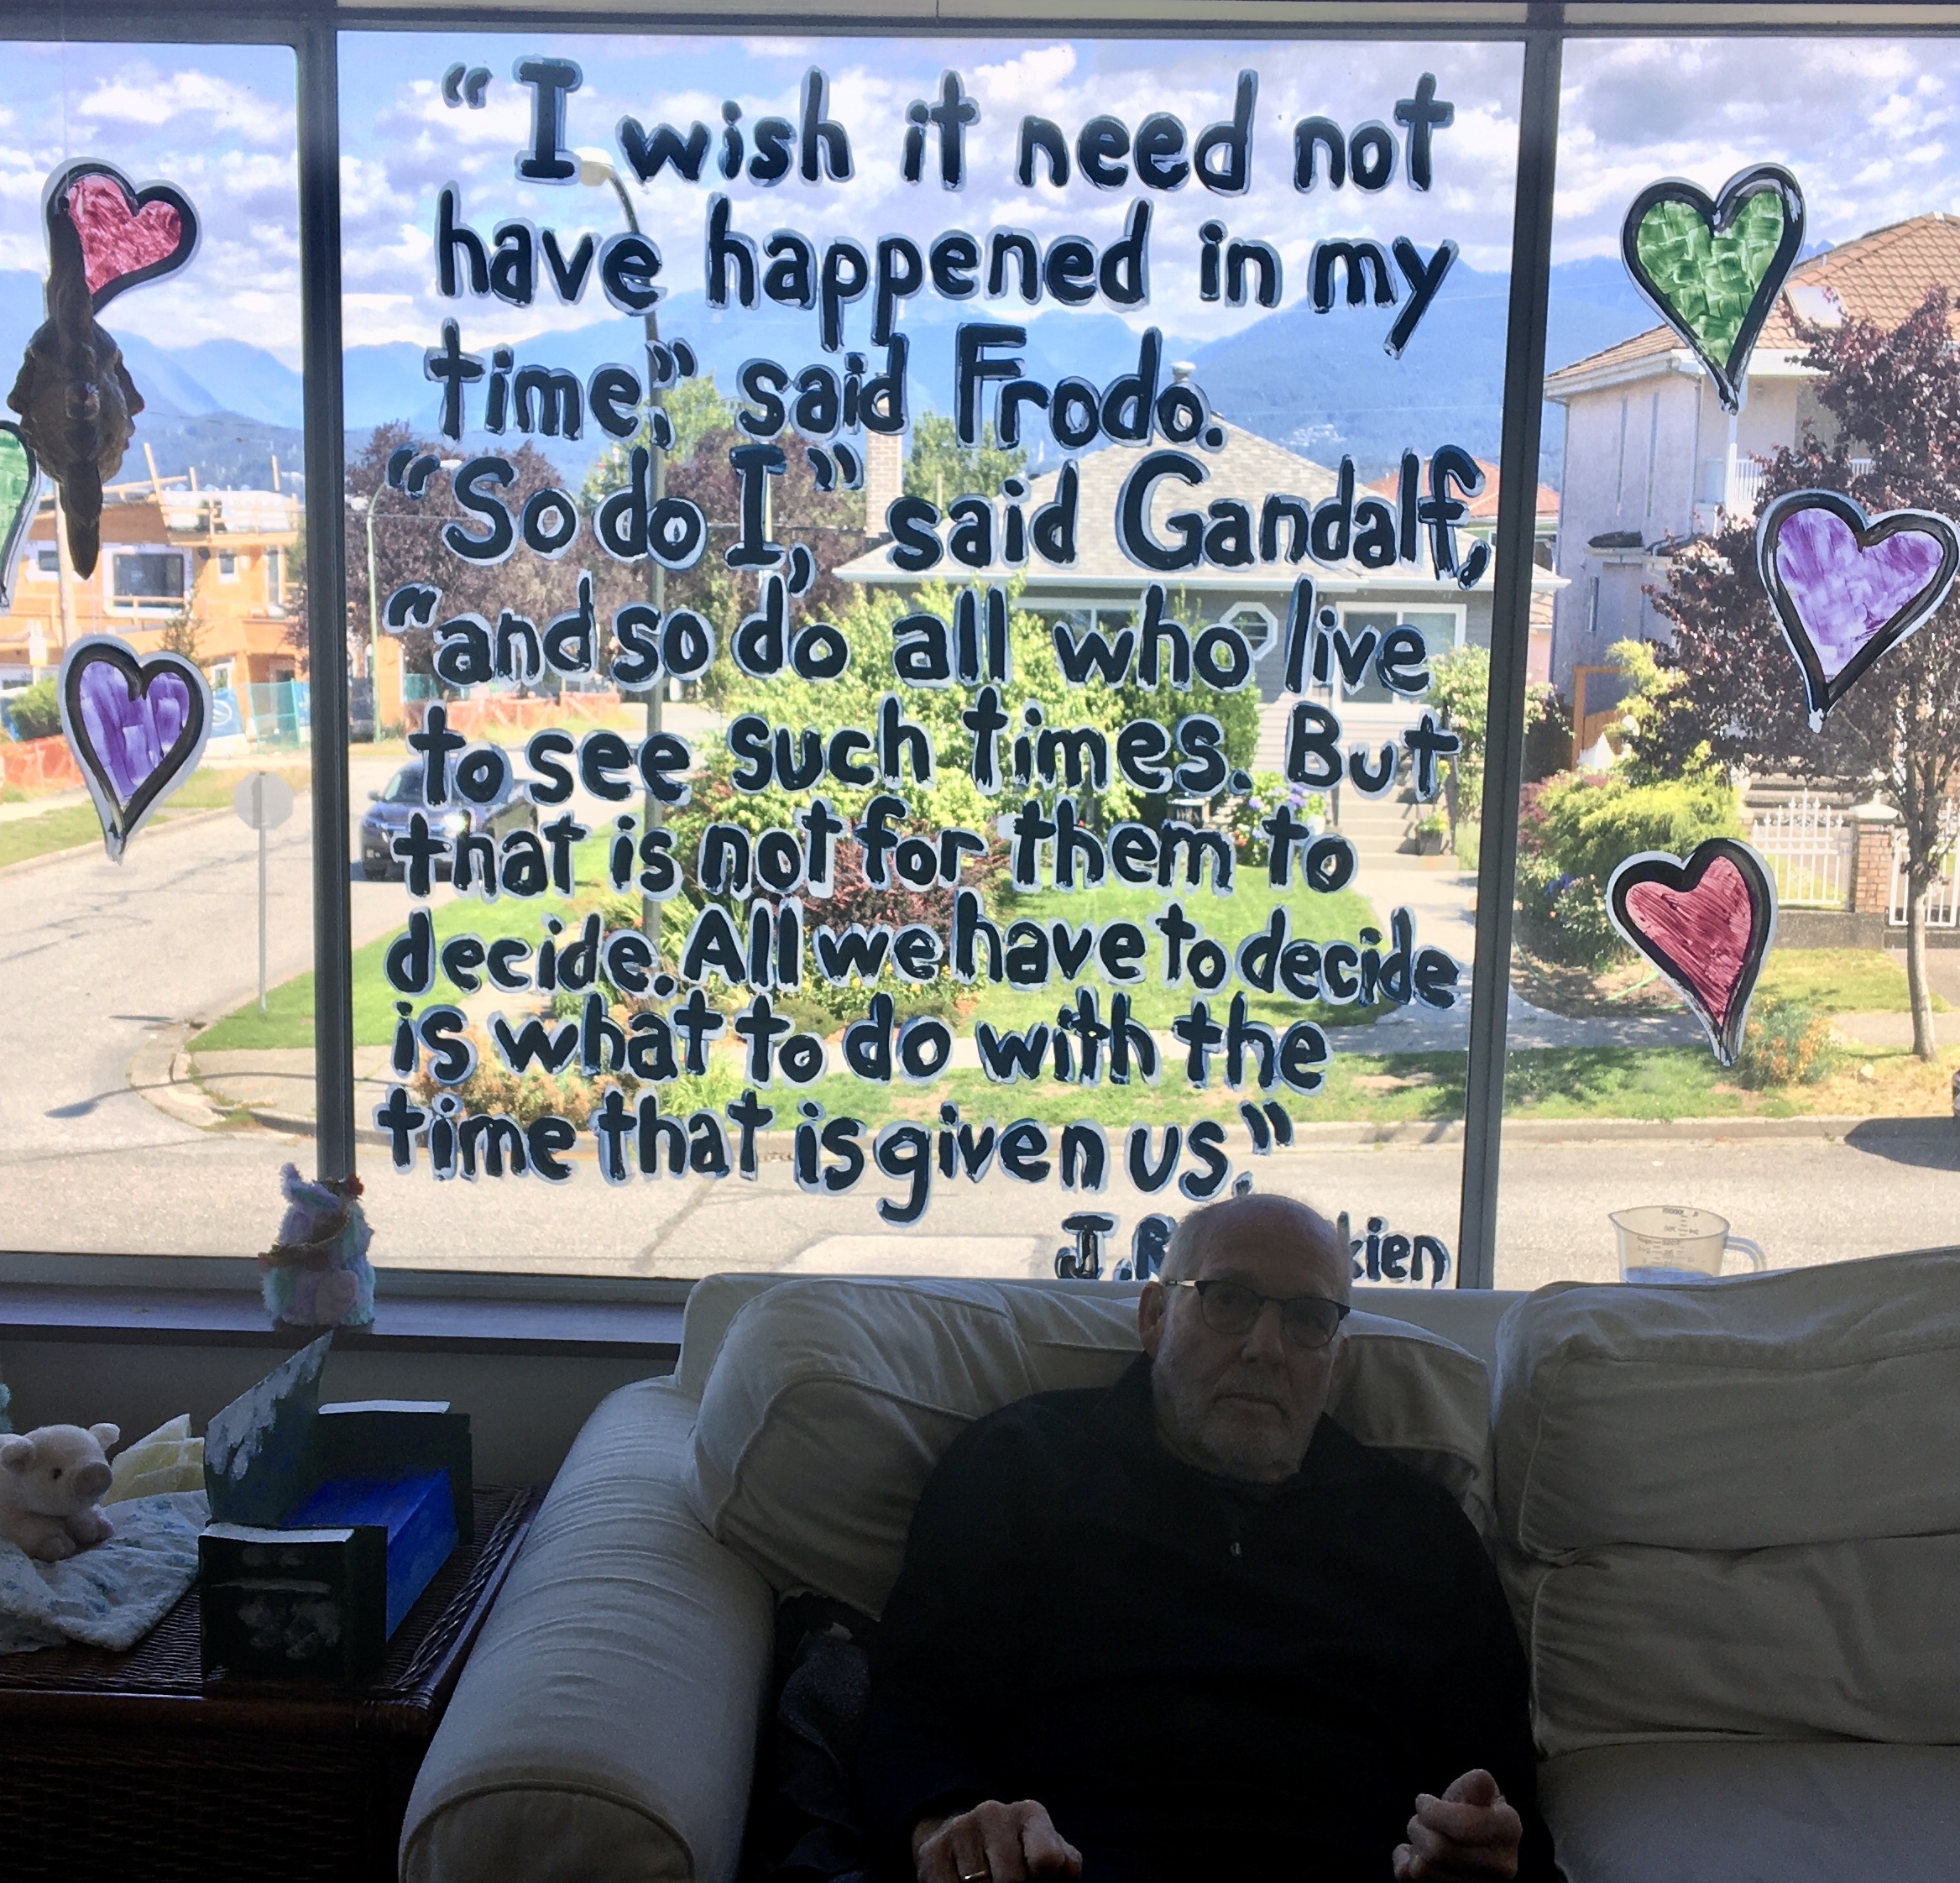 “I wish it need not
have happened in my
time,” said Frodo.
“So do I,” said Gandalf,
“and so do all who live
to see such times. But
that is not for them to
decide. All we have to decide
is what to do with the
time that is given us.”
J.R kien